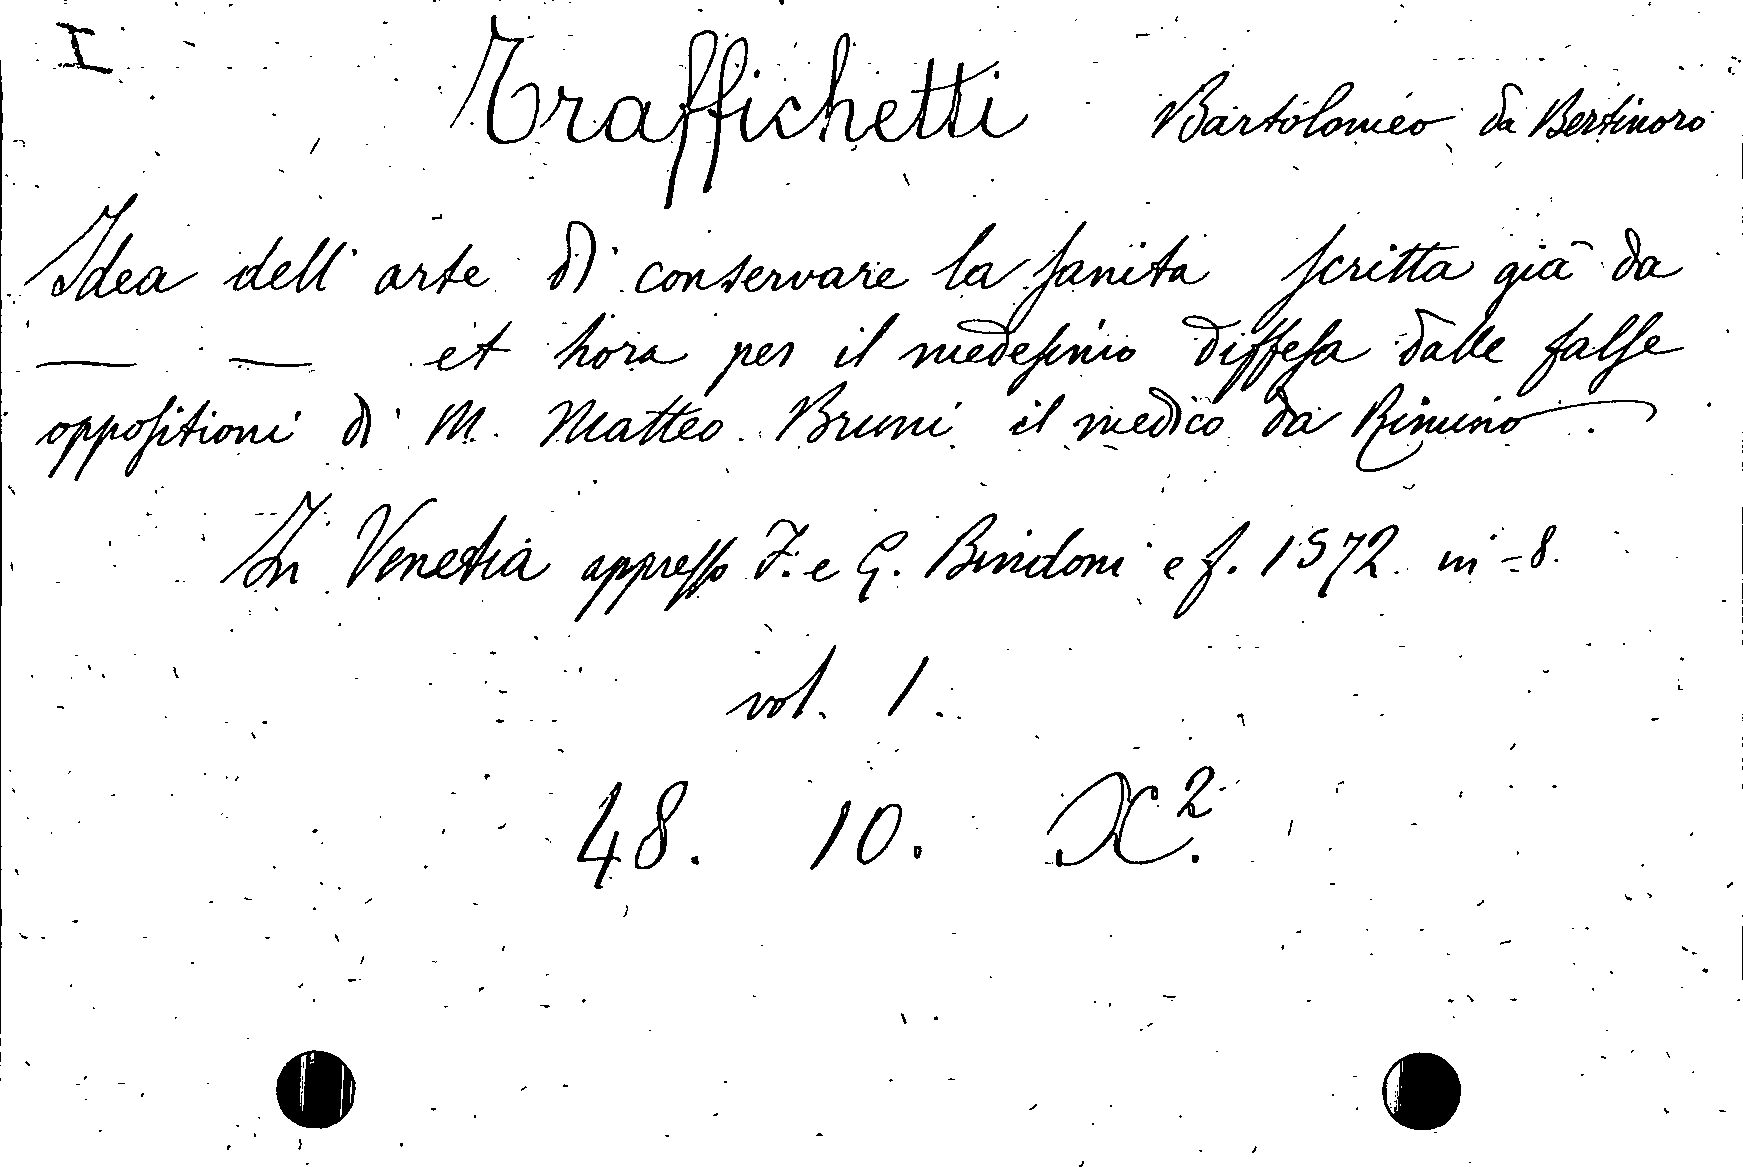 I
Traffichetti Bartolomeo da Bertinoro
Idea dell' arte di conservare la sanita scritta già da
— — et hora per il medesimo diffesa dalle false
oppositioni di M. Matteo Bruni il medico da Rimino.
In Venetia appresso F. e G. Bindoni e f. 1572 in-8.
vol. 1.
48. 10. X².